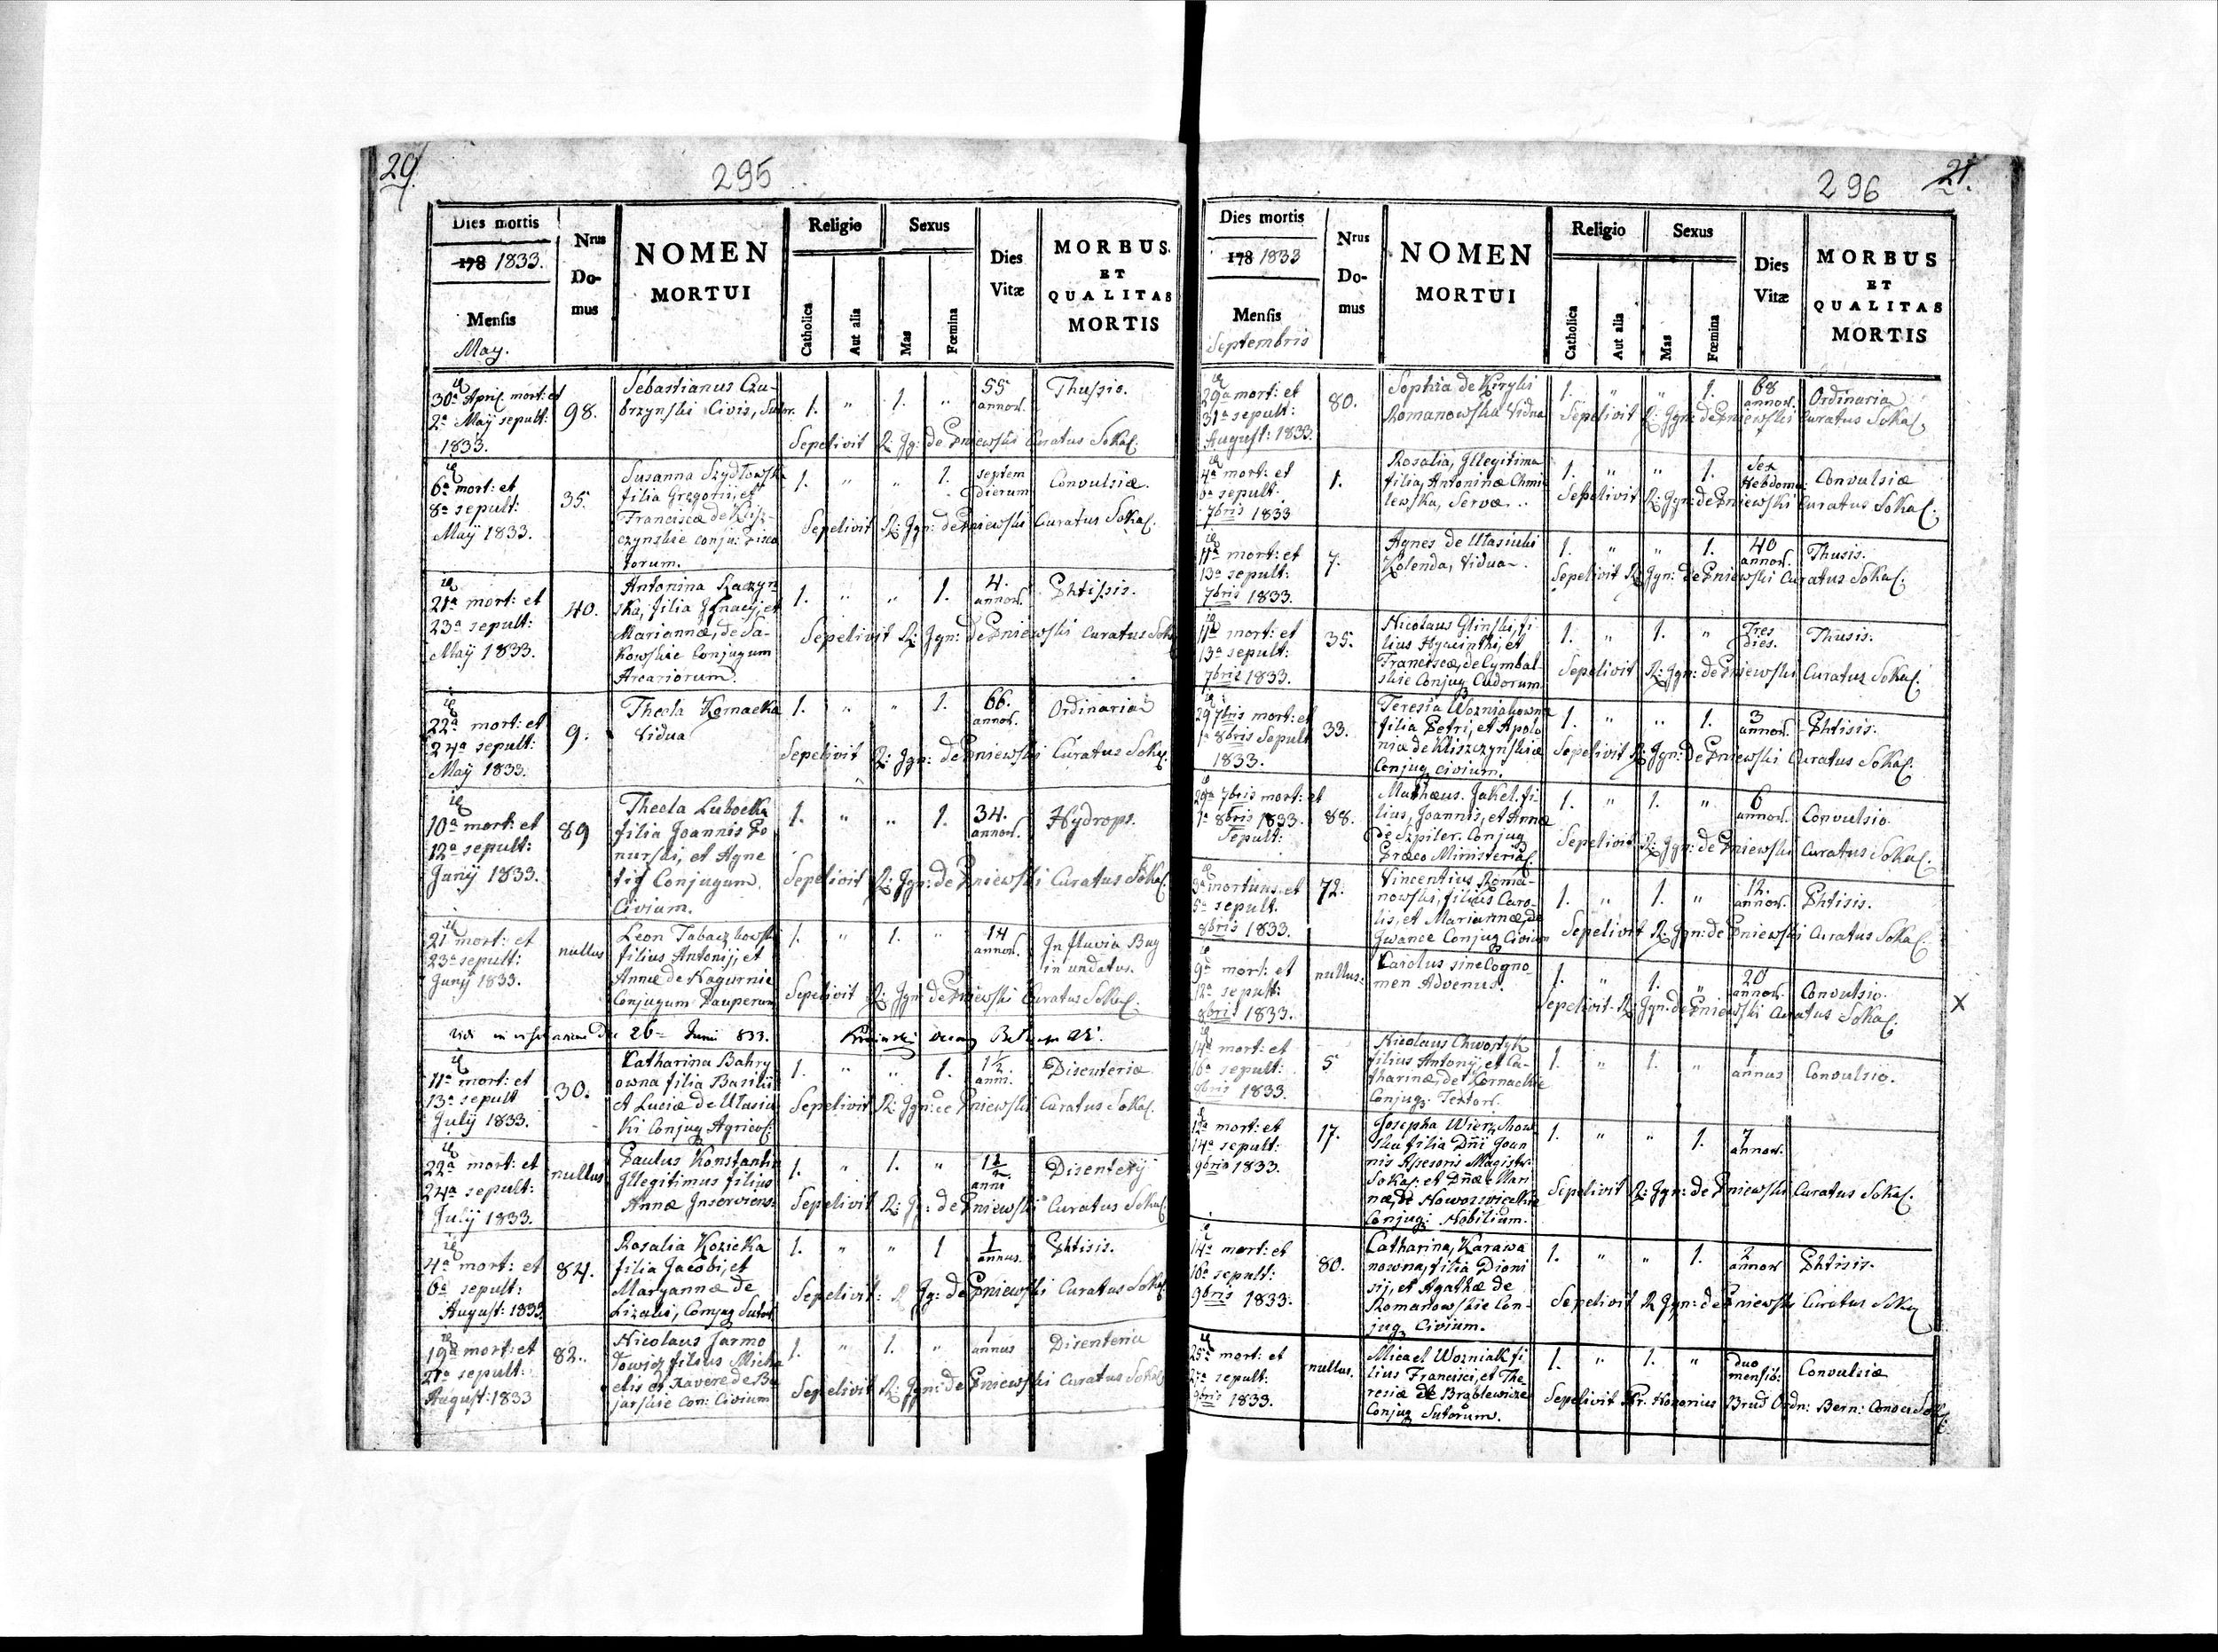 29.
295
Dies mortis
178 1833.
Mensis
May.
Nrus
Do-
mus
NOMEN
MORTUI
Religio
Catholica
Aut alia
Sexus
Mas
Fœmina
Dies
Vitæ
MORBUS
ET
QUALITAS
MORTIS
30a April mort: et
2a May sepult:
1833.
98.
Sebastianus Czu-
brzynski Civis, Sutor.
1. " 1. "
55
annor.
Thussio.
Sepelivit R: Jg: de Pniewski Curatus Sokal.
6a mort: et
8a sepult:
Maÿ 1833.
35.
Susanna Szydłowska
filia Gregorii, et
Franciscæ de
czynskie conju:
torum.
1. " " 1.
septem
dierum
Convulsiæ.
Sepelivit R: Jgn: de Pniewski Curatus Sokal.
21a mort: et
23a sepult:
Maÿ 1833.
40.
Antonina Raczyn
ska, filia Ignacij, et
Mariannæ, de Sa-
kowskie Conjugum
Arcariorum.
1. " " 1.
4.
annor.
Phtissis.
Sepelivit R: Jgn: de Pniewski Curatus Sok
22a mort: et
24a sepult:
Maÿ 1833.
9.
Thecla Kornacka
Vidua
1. " " 1.
66.
annor.
Ordinaria
Sepelivit R: Jgn: de Pniewski Curatus Sokal.
10a mort: et
12a sepult:
Junÿ 1833.
89
Thecla Lubocka
filia Joannis Po
nurski, et Agne
tis Conjugum.
Civium.
1. " " 1.
34.
annor.
Hydrops.
Sepelivit R: Jgn: de Pniewski Curatus Sokal.
21 mort: et
23a sepult:
Junÿ 1833.
nullus
Leon Tabaczkowski
filius Antonij, et
Annæ de Nagurnie
Conjugum Pauperum
1. " 1. "
14
annor.
In fluvia Bug
inundatus.
Sepelivit R: Jgn: de Pniewski Curatus Sokal.
26 Junii 833.
11a mort: et
13a sepult
Julÿ 1833.
30.
Catharina Bahry
owna filia Basilii
et Luciæ de Ulasiu
ki Conjug Agricol:
1. " " 1.
1½.
anni.
Disenteriæ
Sepelivit R: Jgn: de Pniewski Curatus Sokal.
22a mort: et
24a sepult:
Julÿ 1833.
nullus
Paulus Konstantin
Illegitimus filius
Annæ Inserviens:
1. " 1. "
1½
anni
Disenterÿ
Sepelivit R: Jg: de Pniewski Curatus Sokal.
4a mort: et
6a sepult:
August: 1833
84.
Rosalia Kozicka
filia Jacobi, et
Maryannæ de
Lizaki, Conjug Sutor.
1. " " 1
1
annus.
Phtisis.
Sepelivit: R Jg: de Pniewski Curatus Sokal.
19a mort: et
21a sepult:
August: 1833
82.
Nicolaus Jarmo
łowicz filius Micha
elis et Xavere de Bu
jarskie Con: Civium
1. " 1. "
1
annus
Disenteria
Sepelivit R: Jgn: de Pniewski Curatus Sokal
296
21.
Dies mortis
178 1833
Mensis
Septembris
Nrus
Do-
mus
NOMEN
MORTUI
Religio
Catholica
Aut alia
Sexus
Mas
Fœmina
Dies
Vitæ
MORBUS
ET
QUALITAS
MORTIS
29a mort: et
31a sepult:
August: 1833.
80.
Sophia de Kirylu
Romanowska Vidua
1. " " 1.
68
annor.
Ordinaria
Sepelivit R: Jgn: de Pniewski Curatus Sokal.
4a mort: et
6a sepult.
7bris 1833
1.
Rosalia, Illegitima
filia, Antoninæ Chmie
lewska, Servæ..
1. " " 1.
Sex
Hebdoma
Convulsiæ
Sepelivit R: Jgn: de Pniewski Curatus Sokal.
11a mort: et
13a sepult:
7bris 1833.
7.
Agnes de Ulasiuki
Kolenda, Vidua.
1. " " 1.
40
annor.
Thusis.
Sepelivit R: Jgn: de Pniewski Curatus Sokal.
11a mort: et
13a sepult:
7bris 1833.
35.
Nicolaus Glinski, fi
lius Hyacinthi, et
Franciscæ, de Cymbal-
skie Conjug Cudorum
1. " 1. "
Tres
dies.
Thusis.
Sepelivit R: Jgn: de Pniewski Curatus Sokal.
29 7bris mort: et
1a 8bris Sepult
1833.
33.
Teresia Wozniakowna
filia Petri, et Apolo
niæ de Kliszczynskie
Conjug civium.
1. " " 1.
3
annor.
Phtisis.
Sepelivit R: Jgn: de Pniewski Curatus Sokal.
29a 7bris mort: et
1a 8bris 1833.
Sepult:
88.
Mathæus. Jakel. fi
lius, Joannis, et Annæ
de Szpiler. Conjug
Præco Ministerial.
1. " 1. "
6
annor.
Convulsio
Sepelivit R: Jgn: de Pniewski Curatus Sokal.
3a mortuus. et
5a sepult.
8bris 1833.
72.
Vincentius Roma-
nowski, filius Caro-
lis, et Mariannæ, de
Iwance Conjug Civium
1. " 1. "
12.
annor.
Phtisis.
Sepelivit R: Jgn: de Pniewski Curatus Sokal.
9a mort: et
12a sepult:
8bris 1833.
nullus.
Carolus sine Cogno-
men Advenus.
1. " 1. "
20
annor.
Convulsio.
Sepelivit R: Jgn: de Pniewski Curatus Sokal.
X
14a mort: et
16a sepult:
8bris 1833.
5
Nicolaus Chwostyk
filius Antonÿ, et Ca-
tharinæ, de Kornackie
Conjug. Textor.
1. " 1. "
1
annus
Convulsio.
12a mort: et
14a sepult:
9bris 1833.
17.
Josepha Wierzchow
ska filia Dñi Joan
nis Asesoris Magistr:
Sokal: et Dñæ Mari
næ, de Noworzwieckie
Conjug: Nobilium.
1. " " 1.
7
annor.
Sepelivit R: Jgn: de Pniewski Curatus Sokal.
14a mort: et
16a sepult:
9bris 1833.
80.
Catharina, Karawa
nowna, filia Dioni
sij, et Agathæ de
Romanowskie Con-
jug Civium.
1. " " 1.
2
annor
Phtisis.
Sepelivit R Jgn: de Pniewski Curatus Sokal
25a mort: et
27a sepult:
9bris 1833.
nullus.
Micael Wozniak fi
lius Francisci, et The-
resiæ de Brablewicze
Conjug Sutorum.
1. " 1. "
duo
mensib:
Convulsiæ
Sepelivit Fr. Honorius Brud Ordn: Bern: